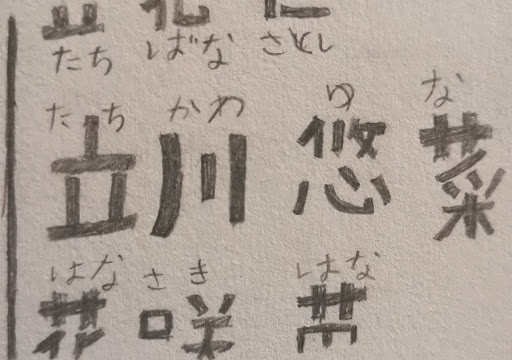 たち ばな さとし
たち かわ ゆ な
立川 悠菜
はな さき はな
花咲